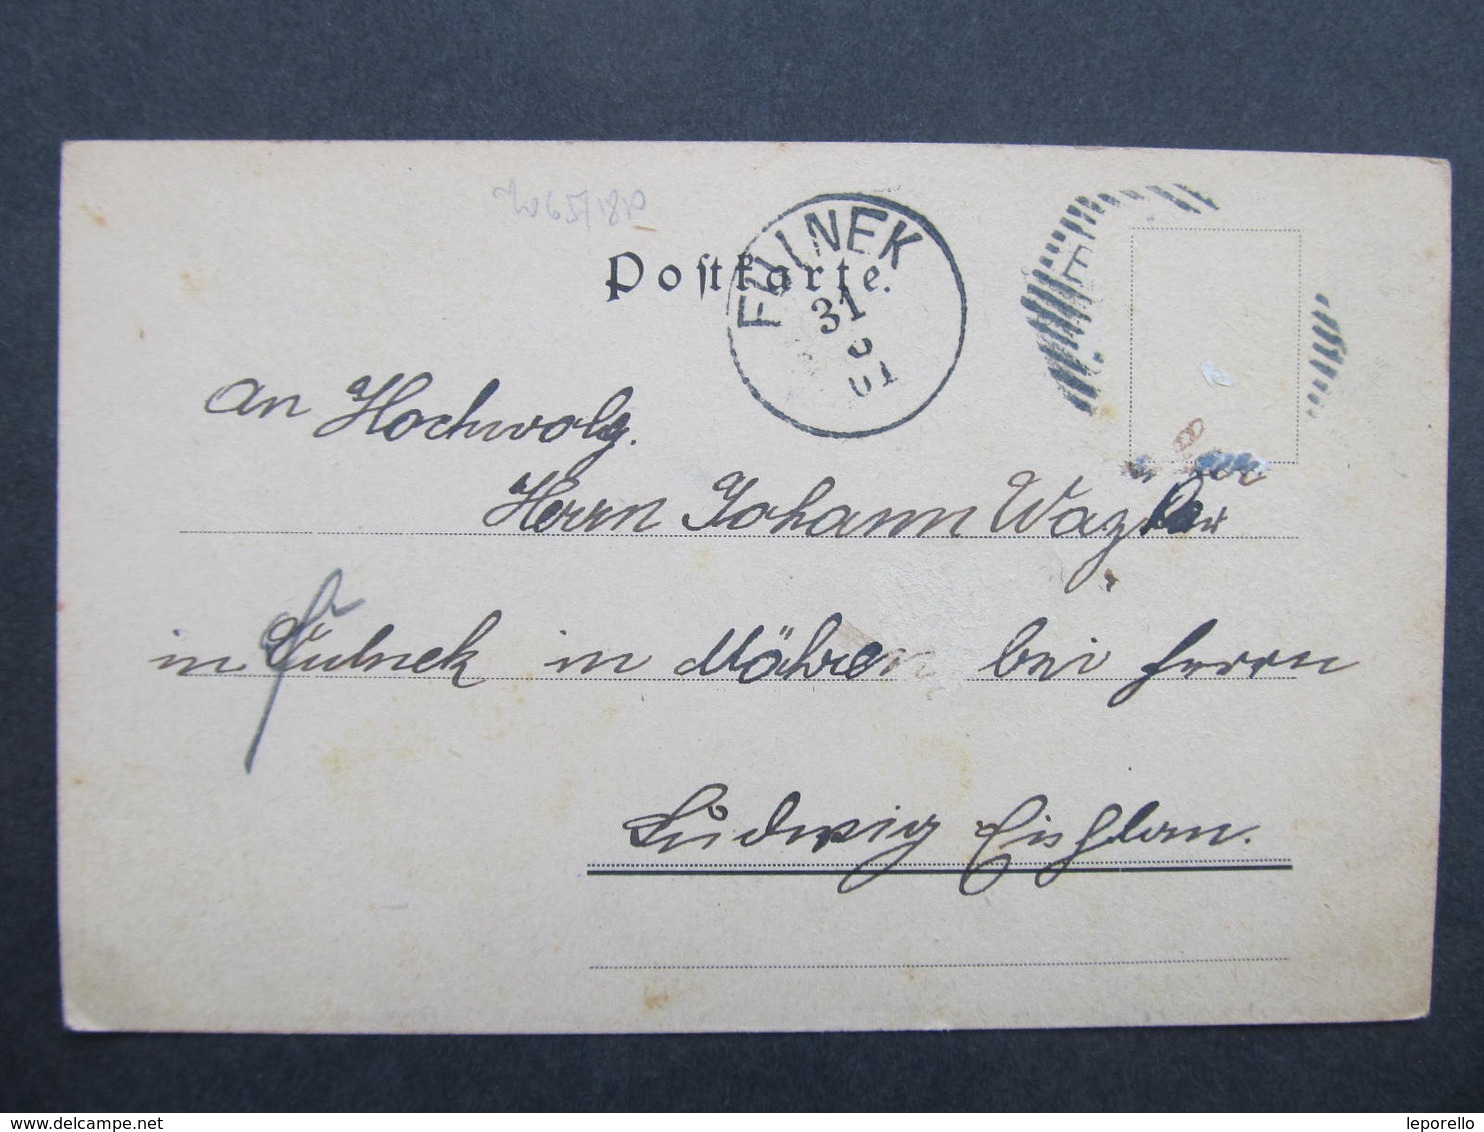 Postkarte.
FULNEK
31
5
01
an Hochwolg.
Herrn Johann Wagner
in Fulnek in Mähren bei Herrn
Ludwig
delcampe.net
leporello